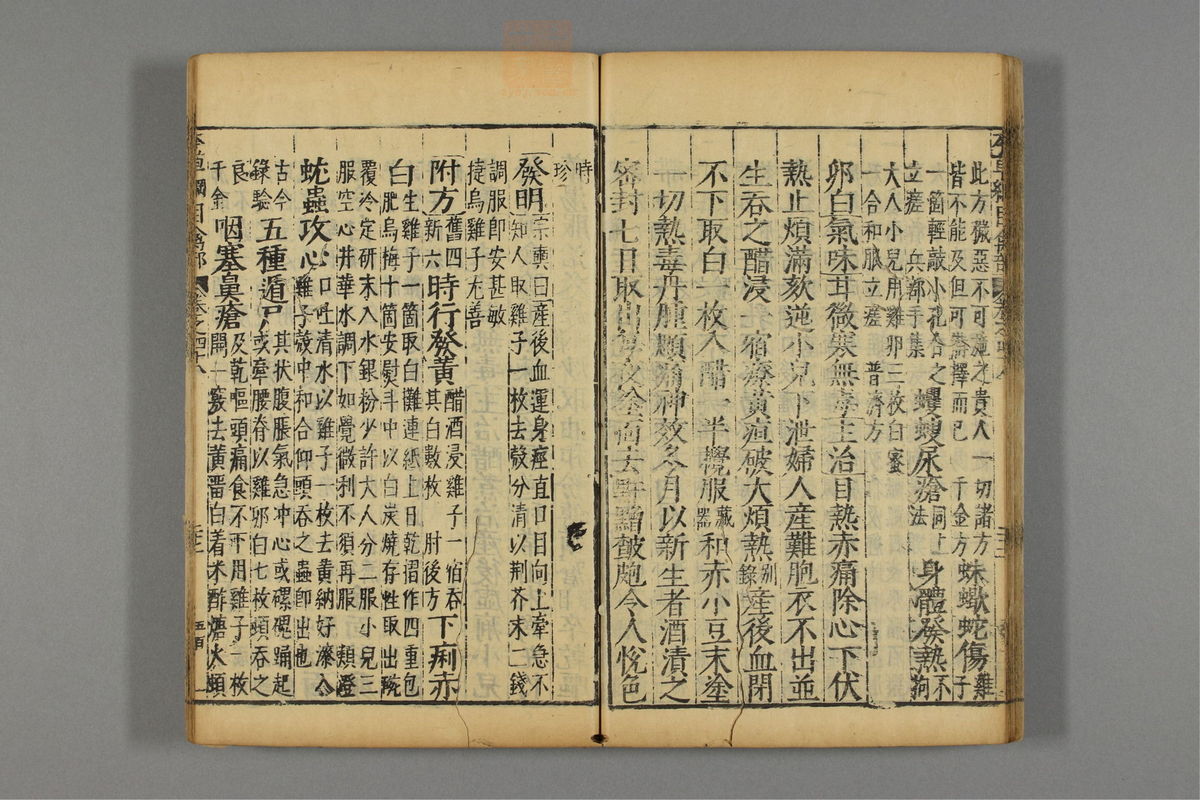 本草綱目禽部 卷之四十八
此方穢惡不可施之貴人一切諸方
皆不能及但可審擇而已 千金方
蛛蠍蛇傷雞子
一箇輕敲小孔合之
立瘥 兵部手集
蠼螋尿瘡同上法
身體發熱不拘
大人小兒用雞卵三枚白蜜
一合和服立瘥 普濟方
卵白氣味甘微寒無毒主治目熱赤痛除心下伏
熱止煩滿欬逆小兒下泄婦人產難胞衣不出並
生吞之醋浸一宿療黃疸破大煩熱別錄產後血閉
不下取白一枚入醋一半攪服藏器和赤小豆末塗
一切熱毒丹腫顋痛神效冬月以新生者酒漬之
密封七日取出每夜塗面去䵟䵳皶皰令人悅色
時珍
發明宗奭曰產後血運身痙直口目向上牽急不
知人取雞子一枚去殼分清以荊芥末二錢
調服即安甚敏
捷烏雞子尤善
附方舊四新六時行發黃醋酒浸雞子一宿吞
其白數枚 肘後方
下痢赤
白生雞子一箇取白攤連紙上日乾摺作四重包
肥烏梅十箇安熨斗中以白炭燒存性取出碗
覆冷定研末入水銀粉少許大人分二服小兒三
服空心井華水調下如覺微利不須再服 類澄
蚘蟲攻心口吐清水以雞子一枚去黃納好漆入
雞子殼中和合仰頭吞之蟲即出也
古今錄驗五種遁尸其狀腹脹氣急冲心或磥磈踊起
或牽腰脊以雞卵白七枚頓吞之
良千金咽塞鼻瘡及乾嘔頭痛食不下用雞子一枚
開一竅去黃畱白着米酢煻火頓
本草綱目禽部 卷之四十八